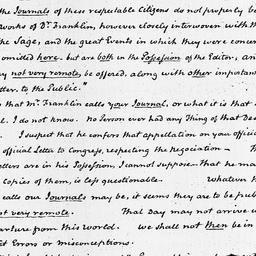 the Journals of these respectable Citizens do not properly be
works of Dr. Franklin, however closely interwoven with th
the Sage, and the great Events in which they were concern
omitted here. but are both in the Possession of the Editor, an
y not very remote, be offered, along with other important
tter. to the Public."
that Mr. Franklin calls your Journal, or what it is that
l. I do not know. No Person ever had any Thing of that Des
I suspect that he confers that appellation on your offici
official Letter to Congress, respecting the negociation —
etters are in his Possession, I cannot suppose — That he ma
Copies of them, is less questionable. Whatever h
calls our Journals may be, it seems they are to be pub
not very remote. That Day may not arrive u
arture from this world. we shall not then be in
it Errors or misconceptions.